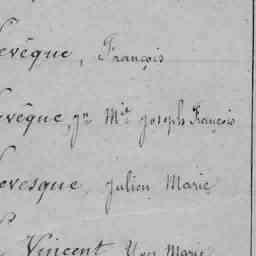 evêque, François
evêque, Jn Mie Joseph François
evesque, Julien Marie
Vincent Yves Marie